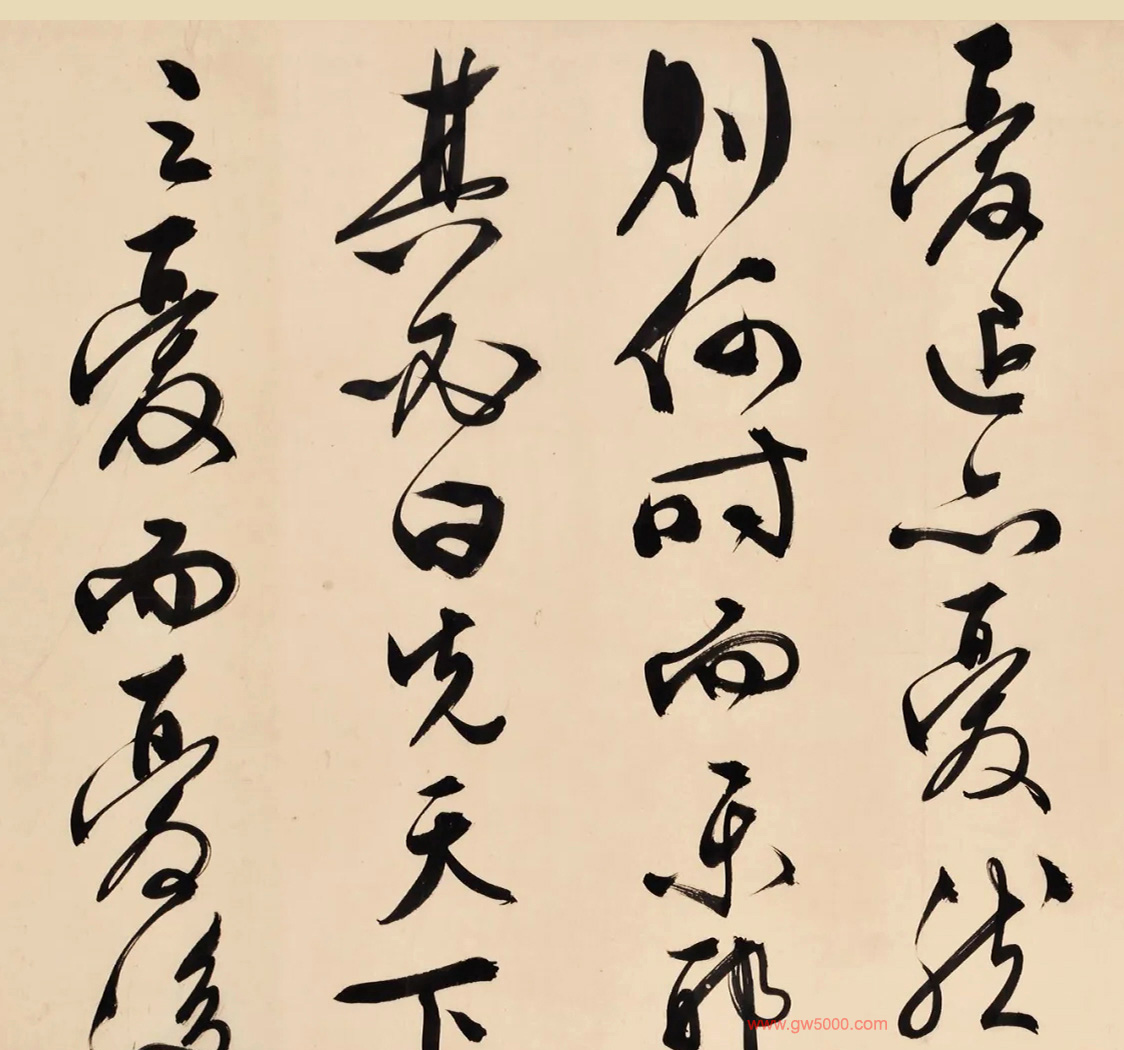 憂退亦憂然
則何時而樂耶
其必曰先天下
之憂而憂後
www.gw5000.com